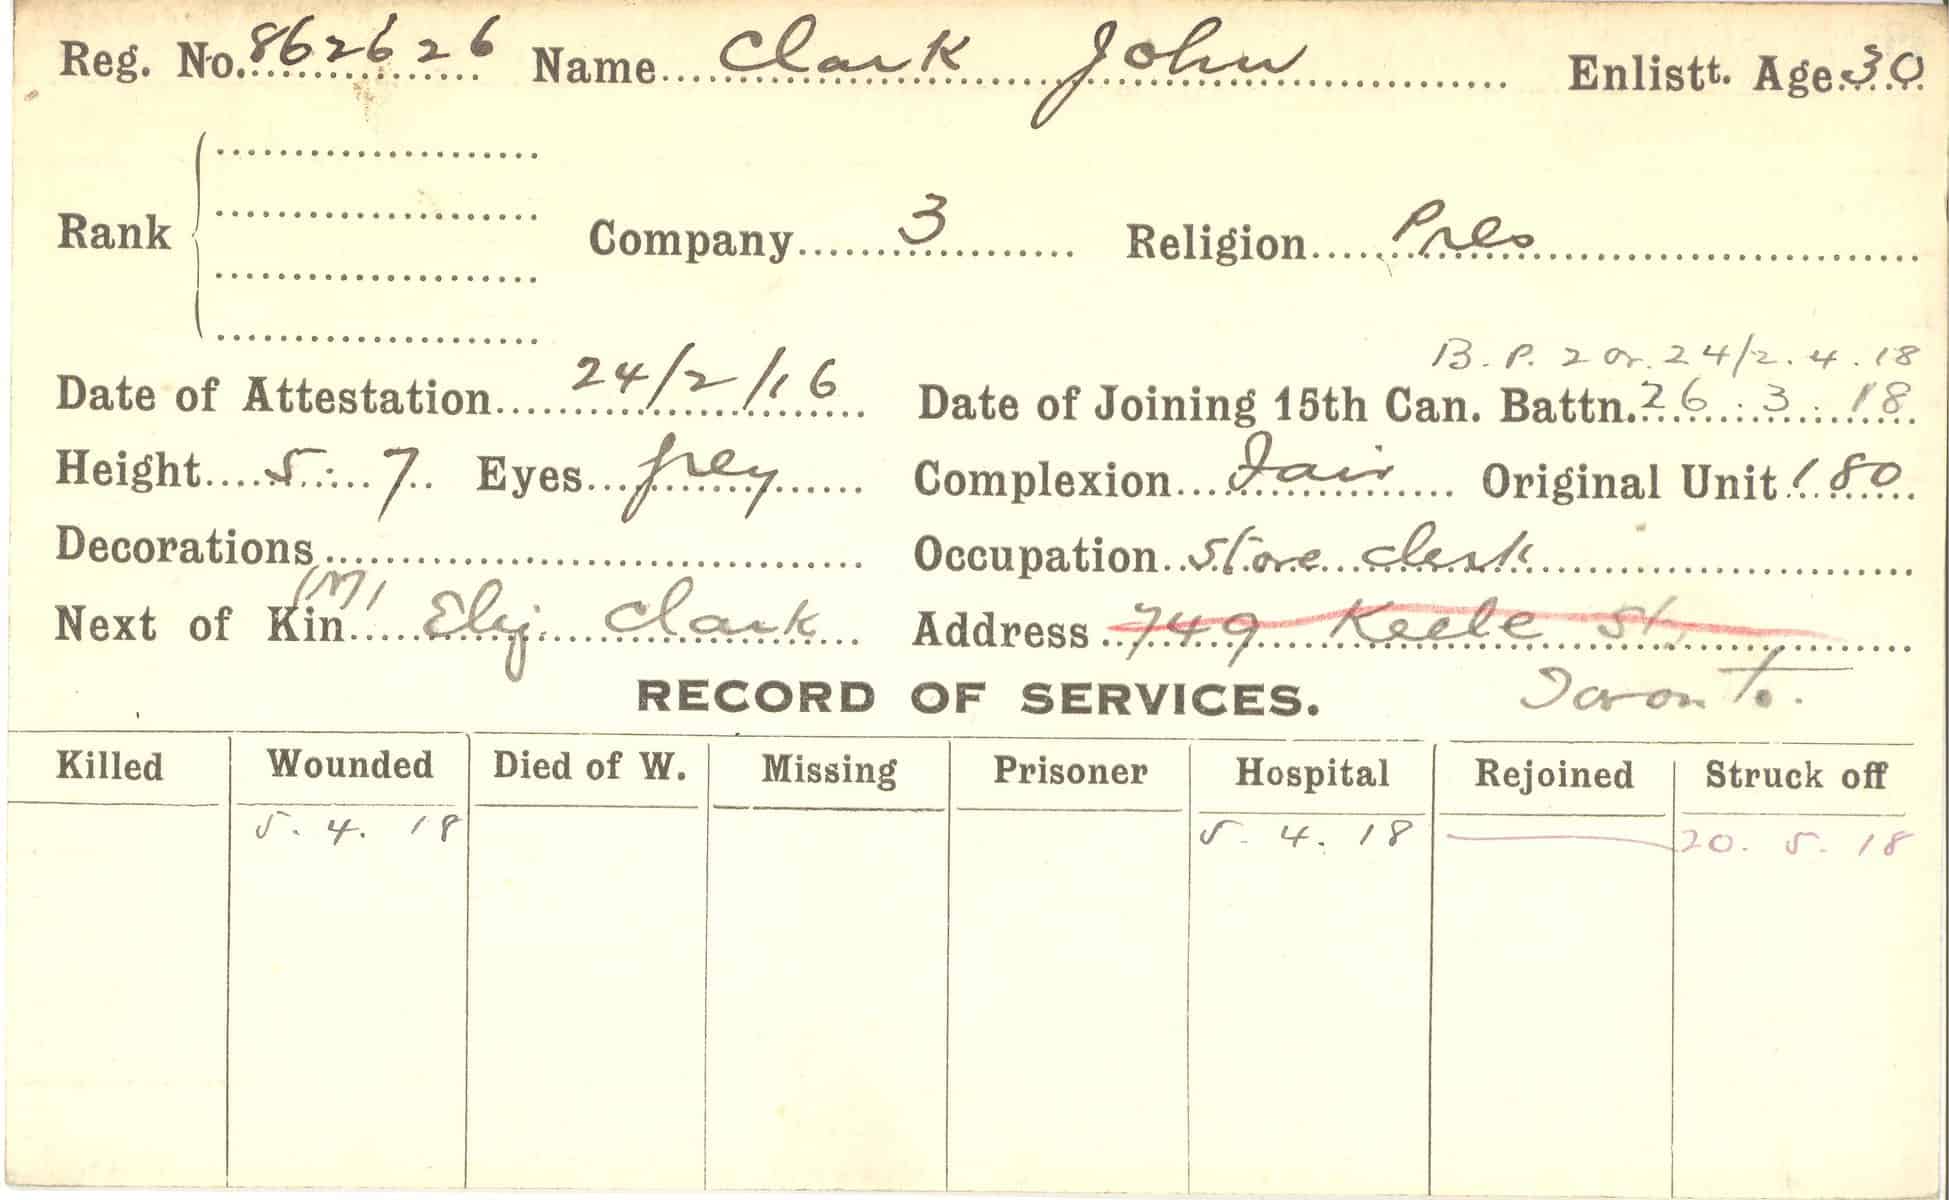 Reg. No. 862626 Name Clark John Enlistt. Age 30
Rank Company 3 Religion Pres
B. P. 2 Or. 24/2. 4. 18
Date of Attestation 24/2/16 Date of Joining 15th Can. Battn. 26. 3. 18
Height 5. 7 Eyes grey Complexion Fair Original Unit 180
Decorations Occupation Store clerk
(M)
Next of Kin Eliz. Clark Address 749 Keele St.
RECORD OF SERVICES. Toronto.
Killed Wounded Died of W. Missing Prisoner Hospital Rejoined Struck off
5. 4. 18 5. 4. 18 20. 5. 18